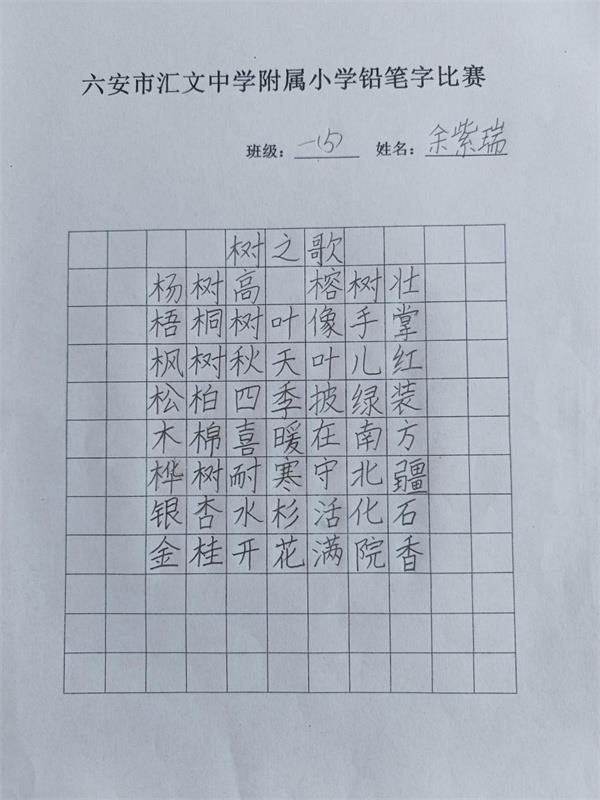 六安市汇文中学附属小学铅笔字比赛
班级：一(5) 姓名：余紫瑞
树之歌
杨树高 榕树壮
梧桐树叶像手掌
枫树秋天叶儿红
松柏四季披绿装
木棉喜暖在南方
桦树耐寒守北疆
银杏水杉活化石
金桂开花满院香